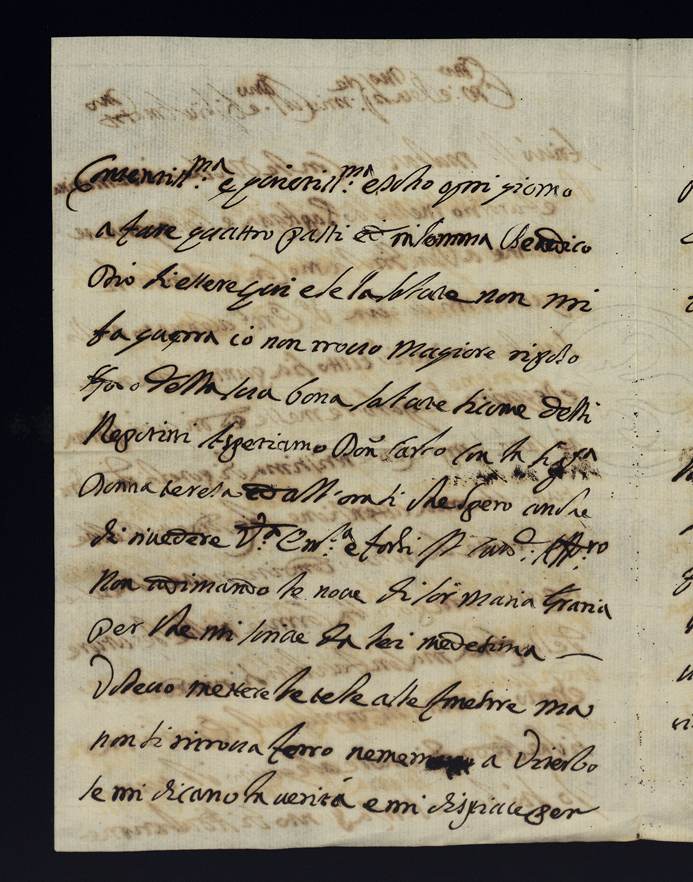 Contentiss:ma e quietiss:ma e scho ogni giorno
a fare quattro passi et in somma Benedico
Dio di essere qui e se la salute non mi
fa guerra io non trovo magiore
della sua bona salute sicome delli
Nepotini aspetiamo Don Carlo con la Sig.ra
Donna teresa all'ora si che spero anche
di rivedere V.ra Em.za e forsi il
Non dimando le nove di sor maria Grazia
per che mi scrive da lei medesima
Volevo mettere le tele alle finestre ma
non si ritrova ferro nemeno a Viterbo
se mi dicano la verità e mi dispiace per